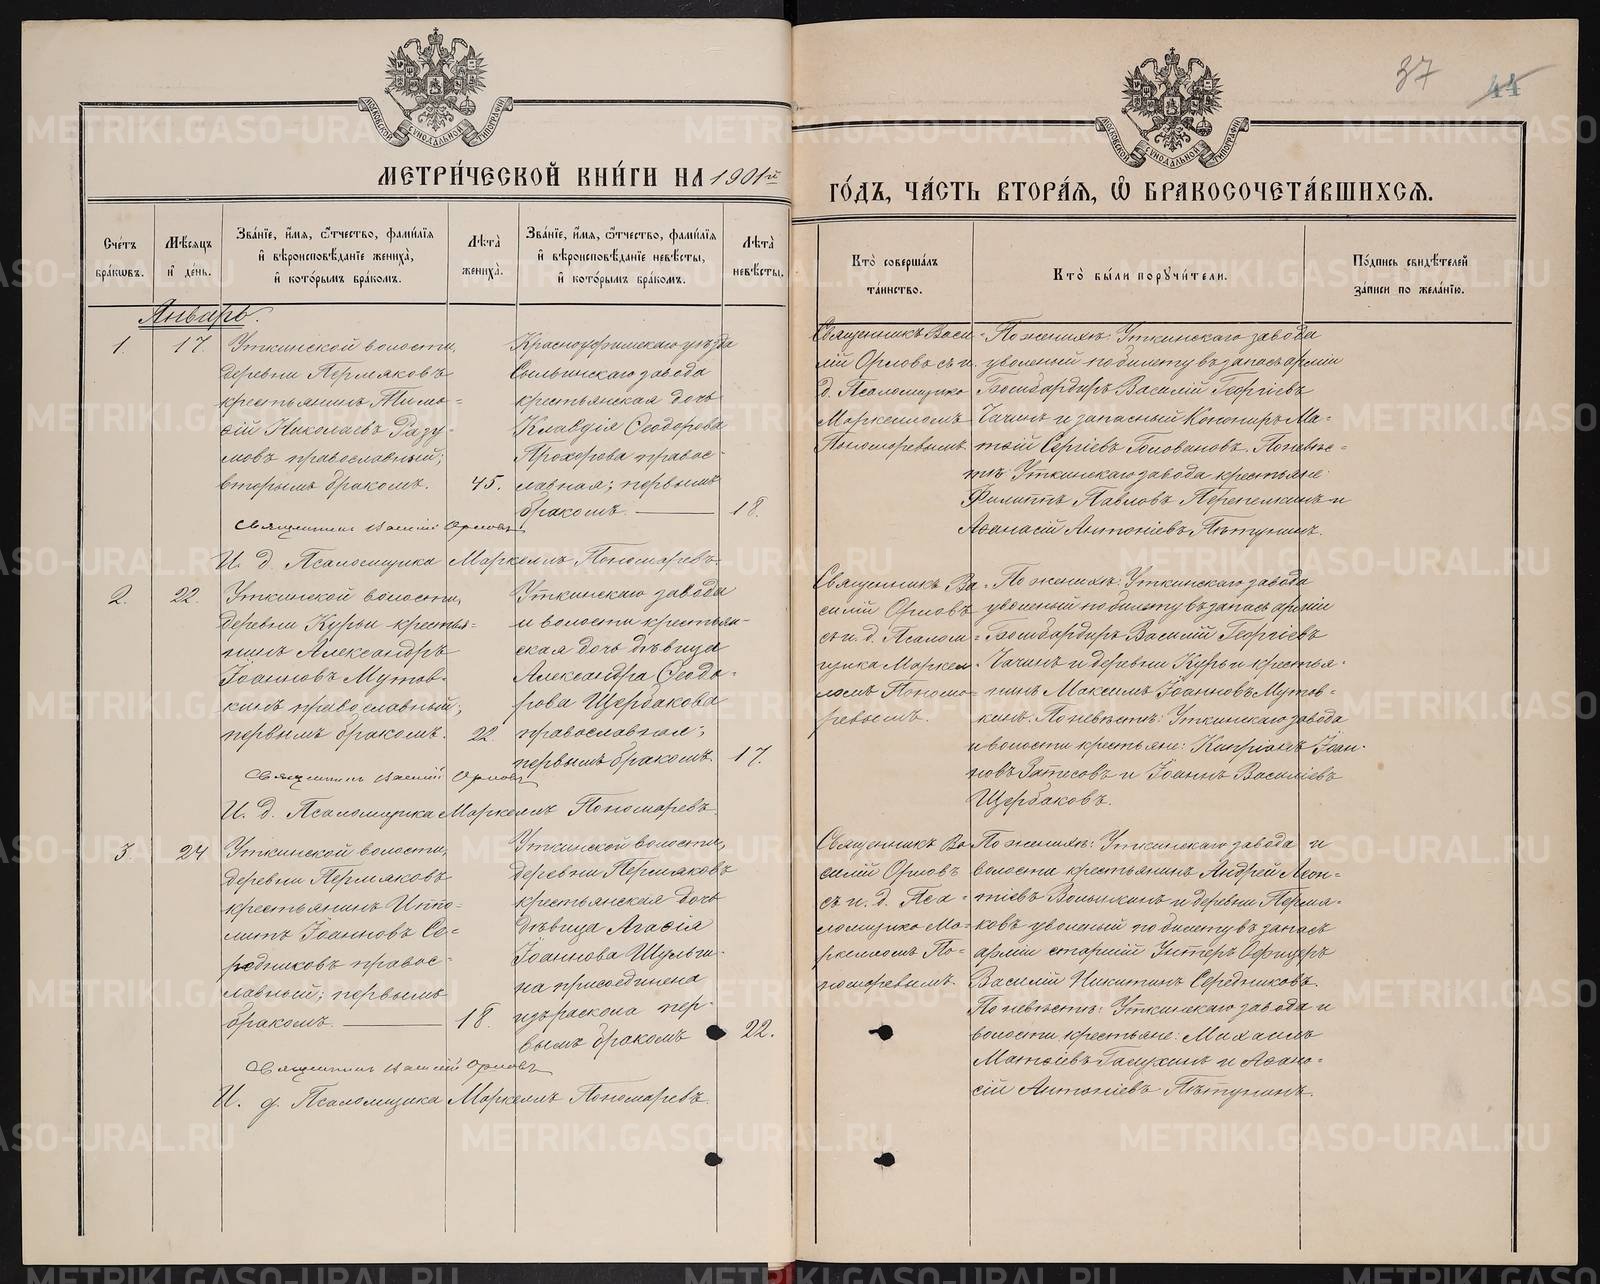 37 44
МОСКОВСКОЙ СѴНОДАЛЬНОЙ ТИПОГРАФІИ
МОСКОВСКОЙ СѴНОДАЛЬНОЙ ТИПОГРАФІИ
МЕТРИ́ЧЕСКОЙ КНИ́ГИ НА 1901й
ГО́ДЪ, ЧА́СТЬ ВТОРА́Ѧ, Ѽ БРАКОСОЧЕТА́ВШИХСѦ.
Сче́тъ бра́кѡвъ.
Мѣ́сѧцъ и҆ де́нь.
Зва́нїе, и҆́мѧ, ѻ҆́тчество, фами́лїѧ и҆ вѣроисповѣ́данїе жениха̀, и҆ кото́рымъ бра́комъ.
Лѣ́та жениха̀.
Зва́нїе, и҆́мѧ, ѻ҆́тчество, фами́лїѧ и҆ вѣроисповѣ́данїе невѣ́сты, и҆ кото́рымъ бра́комъ.
Лѣ́та невѣ́сты.
Кто̀ соверша́лъ та́инство.
Кто̀ бы́ли порꙋчи́тели.
По́дпись свидѣ́телей за́писи по жела́нїю.
Январь.
1.
17.
Уткинской волости,
деревни Пермяковъ
крестьянинъ Тимо-
ѳій Николаевъ Разу-
мовъ православный;
вторымъ бракомъ.
45.
Красноуфимскаго уѣзда
Сылвинскаго завода
крестьянская дочь
Клавдія Ѳеодорова
Прохорова правос-
лавная; первымъ
бракомъ.
18.
Священникъ Васи-
лій Орловъ съ и.
д. Псаломщика
Маркеломъ
Пономаревымъ
По женихѣ: Уткинскаго завода
уволеный по билету въ запасъ арміи
Бомбардиръ Василій Георгіевъ
Чачинъ и запасный Кононіръ Ма-
тѳій Сергіевъ Головановъ. По невѣс-
тѣ: Уткинскаго завода крестьяне
Филиппъ Павловъ Перепелкинъ и
Аѳанасій Антоніевъ Пѣтунинъ.
Священникъ Василій Орловъ
И. д. Псаломщика Маркеллъ Пономаревъ.
2.
22.
Уткинской волости,
деревни Курьи крестья-
нинъ Александръ
Іоанновъ Мутов-
кинъ православный;
первымъ бракомъ.
22.
Уткинскаго завода
и волости крестьян-
ская дочь дѣвица
Александра Ѳеодо-
рова Щербакова
православная;
первымъ бракомъ.
17.
Священникъ Ва-
силій Орловъ
съ и. д. Псалом-
щика Маркел-
ломъ Пономо-
ревымъ.
По женихѣ: Уткинскаго завода
уволеный по билету въ запасъ арміи
Бомбардиръ Василій Георгіевъ
Чачинъ и деревни Курьи крестья-
нинъ Максимъ Іоанновъ Мутов-
кинъ. По невѣстѣ: Уткинскаго завода
и волости крестьяне: Кипріанъ Іоан-
новъ Затесовъ и Іоаннъ Василіевъ
Щербаковъ.
Священникъ Василій Орловъ
И. д. Псаломщика Маркеллъ Пономаревъ.
3.
24
Уткинской волости,
деревни Пермяковъ
крестьянинъ Иппо-
литъ Іоанновъ Се-
редниковъ правос-
лавный; первымъ
бракомъ.
18.
Уткинской волости,
деревни Пермяковъ
крестьянская дочь
дѣвица Агаѳія
Іоаннова Шульги-
на присоединена
изъ раскола пер-
вымъ бракомъ
22.
Священникъ Ва-
силій Орловъ
съ и. д. Пса-
ломщика Ма-
ркеломъ По-
номаревымъ.
По женихѣ: Уткинскаго завода и
волости крестьянинъ Андрей Леон-
тіевъ и деревни Пермя-
ковъ уволеный по билету въ запасъ
арміи старшій Унтеръ Офицеръ
Василій Никитинъ Середниковъ.
По невѣстѣ: Уткинскаго завода и
волости крестьяне: Михаилъ
Матѳіевъ Галухинъ и Аѳана-
сій Антоніевъ Пѣтунинъ.
Священникъ Василій Орловъ
И. д. Псаломщика Маркеллъ Пономаревъ.
METRIKI.GASO-URAL.RU